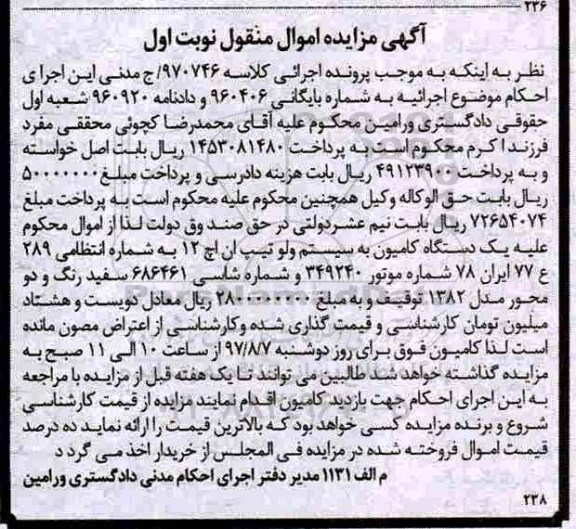 ۲۳۶
آگهی مزایده اموال منقول نوبت اول
نظر به اینکه به موجب پرونده اجرائی کلاسه ۹۷۰۷۴۶/ ج مدنی این اجرای
احکام موضوع اجرائیه به شماره بایگانی ۹۶۰۴۰۶ و دادنامه ۹۶۰۹۲۰ شعبه اول
حقوقی دادگستری ورامین محکوم علیه آقای محمدرضا کچوئی محققی مفرد
فرزند اکرم محکوم است به پرداخت ۱۴۵۳۰۸۱۴۸۰ ریال بابت اصل خواسته
و به پرداخت ۴۹۱۲۳۹۰۰ ریال بابت هزینه دادرسی و پرداخت مبلغ ۵۰۰۰۰۰۰۰
ریال بابت حق الوکاله وکیل همچنین محکوم علیه محکوم است به پرداخت مبلغ
۷۲۶۵۴۰۷۴ ریال بابت نیم عشر دولتی در حق صندوق دولت لذا از اموال محکوم
علیه یک دستگاه کامیون به سیستم ولو تیپ ان اچ ۱۲ به شماره انتظامی ۲۸۹
ع ۷۷ ایران ۷۸ شماره موتور ۳۴۹۲۴۰ و شماره شاسی ۶۸۶۴۶۱ سفید رنگ و دو
محور مدل ۱۳۸۲ توقیف و به مبلغ ۲۸۰۰۰۰۰۰۰۰ ریال معادل دویست و هشتاد
میلیون تومان کارشناسی و قیمت گذاری شده و کارشناسی از اعتراض مصون مانده
است لذا کامیون فوق برای روز دوشنبه ۹۷/۸/۷ از ساعت ۱۰ الی ۱۱ صبح به
مزایده گذاشته خواهد شد طالبین می توانند تا یک هفته قبل از مزایده با مراجعه
به این اجرای احکام جهت بازدید کامیون اقدام نمایند مزایده از قیمت کارشناسی
شروع و برنده مزایده کسی خواهد بود که بالاترین قیمت را ارائه نماید ده درصد
قیمت اموال فروخته شده در مزایده فی المجلس از خریدار اخذ می گردد
م الف ۱۱۳۱ مدیر دفتر اجرای احکام مدنی دادگستری ورامین
۲۳۸